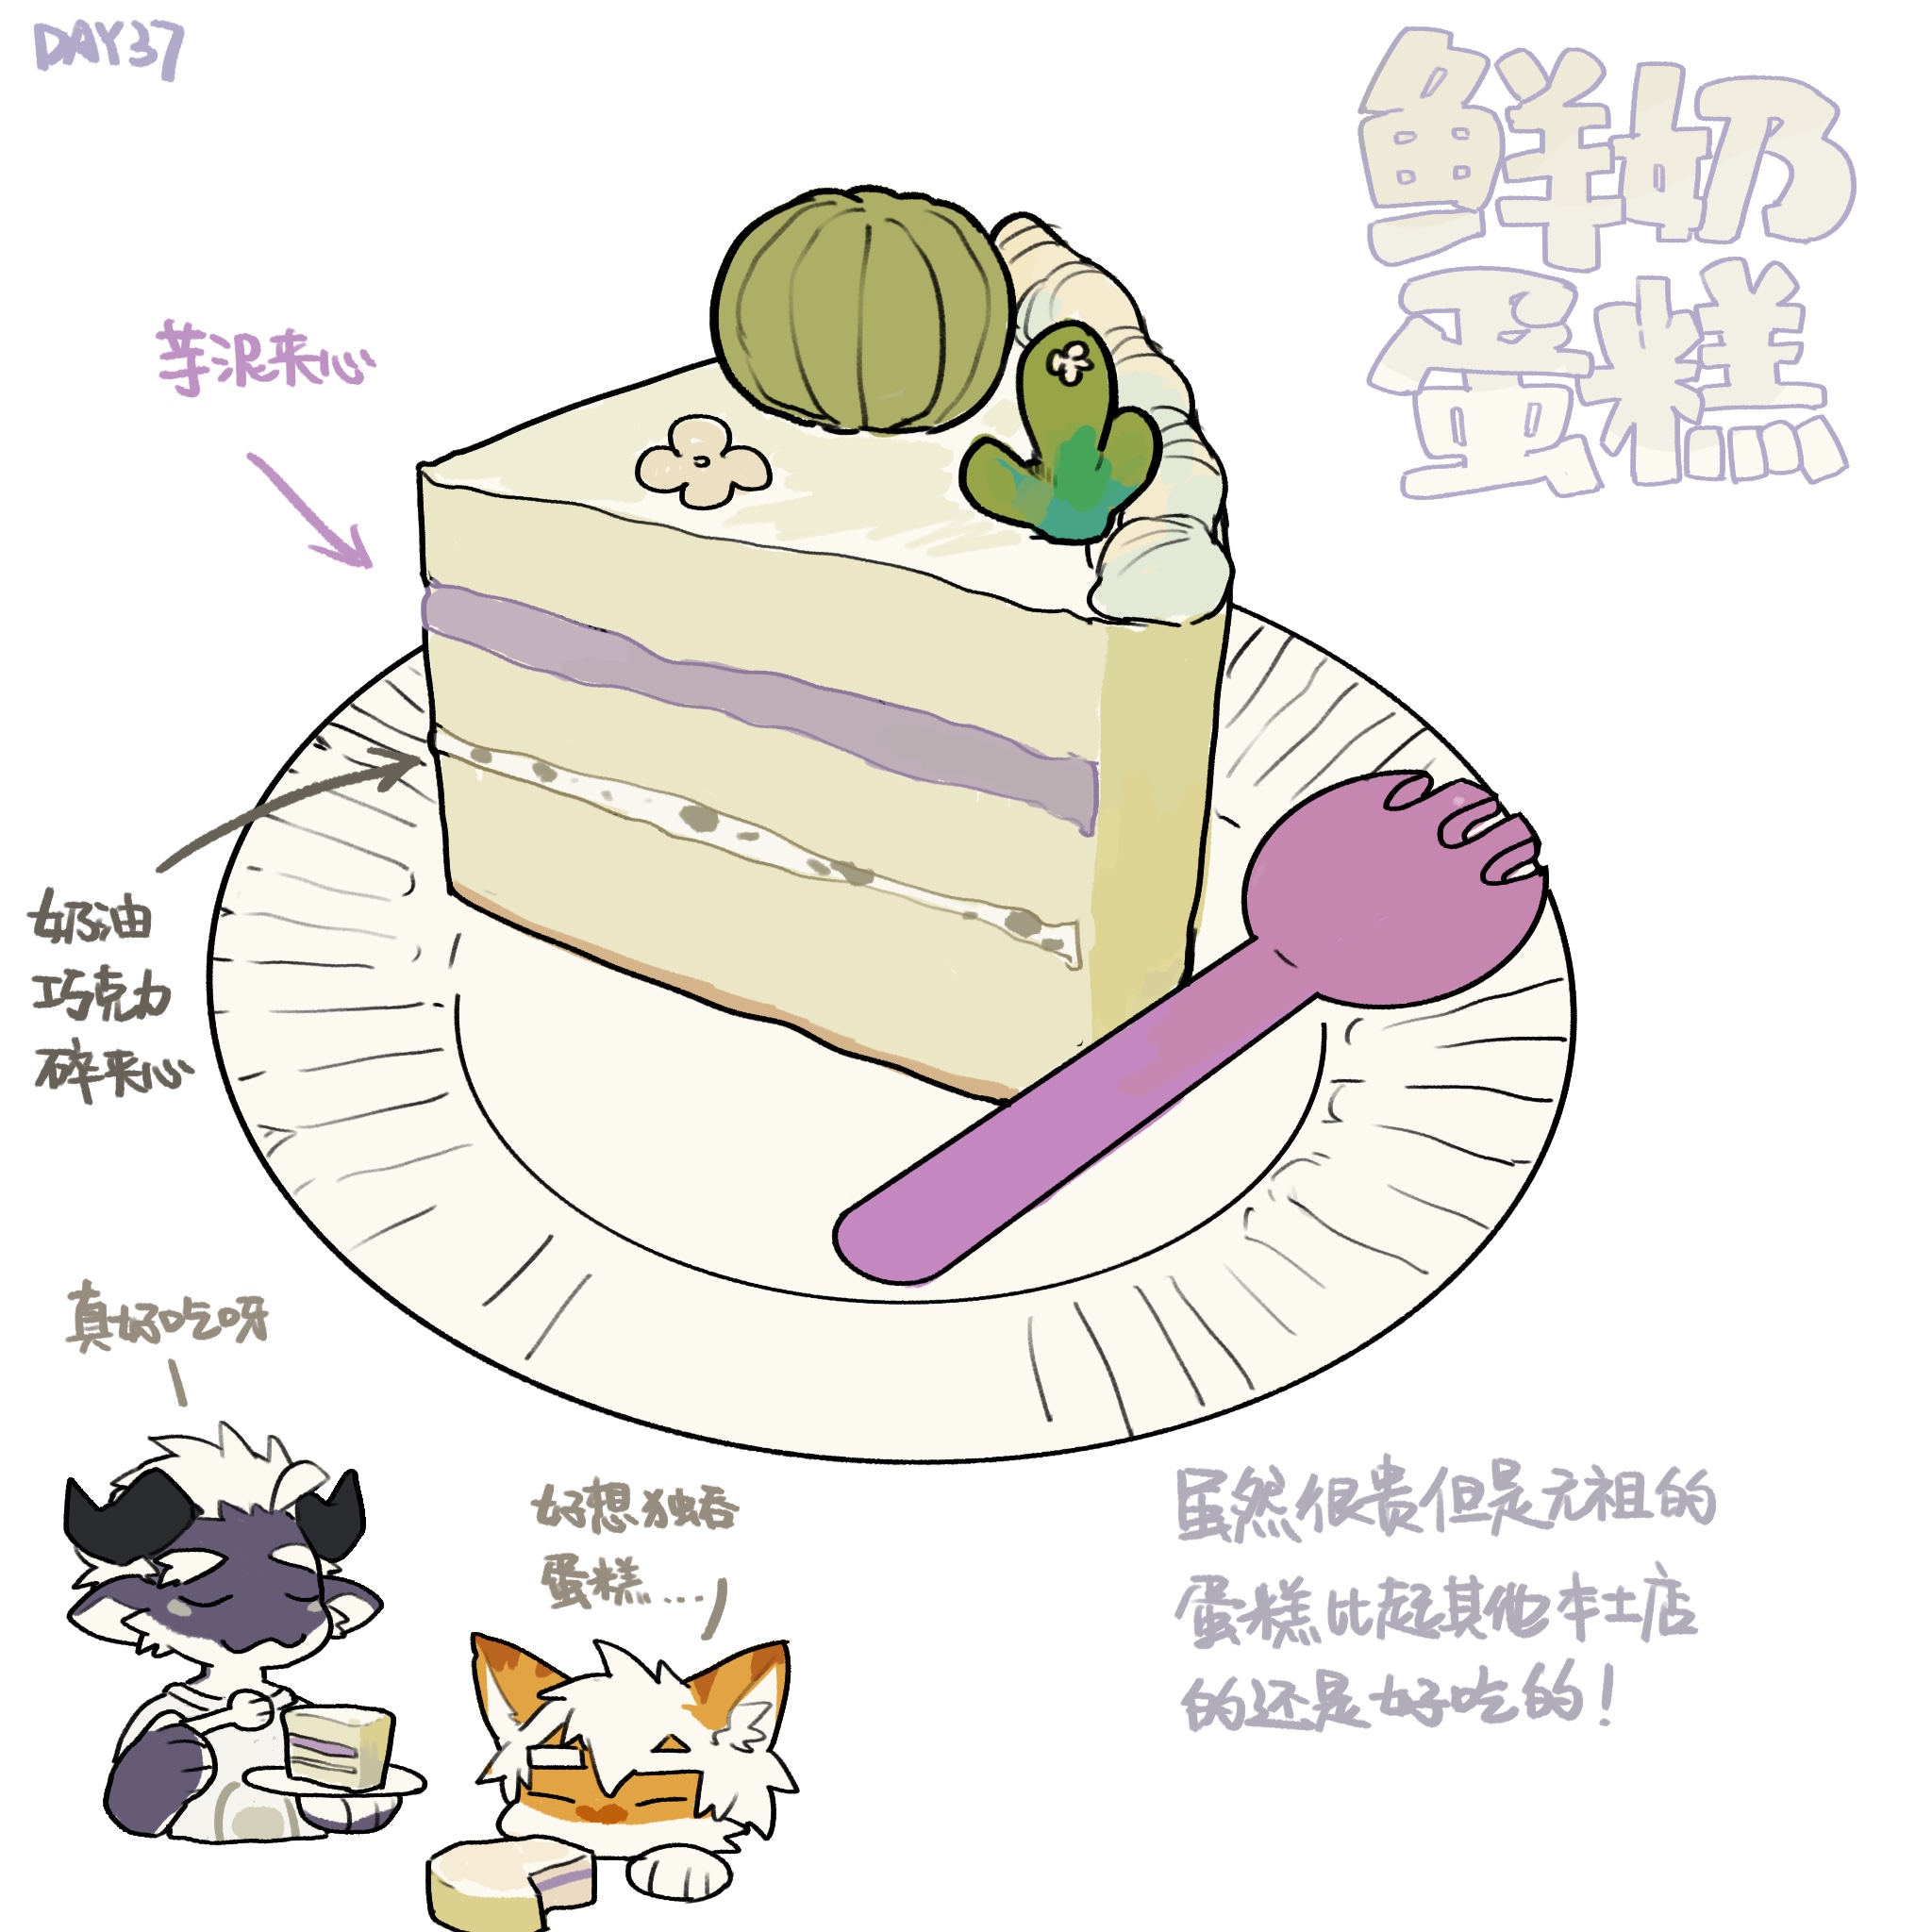 DAY37
鲜奶
蛋糕
芋泥夹心
奶油
巧克力
碎夹心
真好吃呀
好想独吞
蛋糕....
虽然很贵但是元祖的
蛋糕比起其他本土店
的还是好吃的！